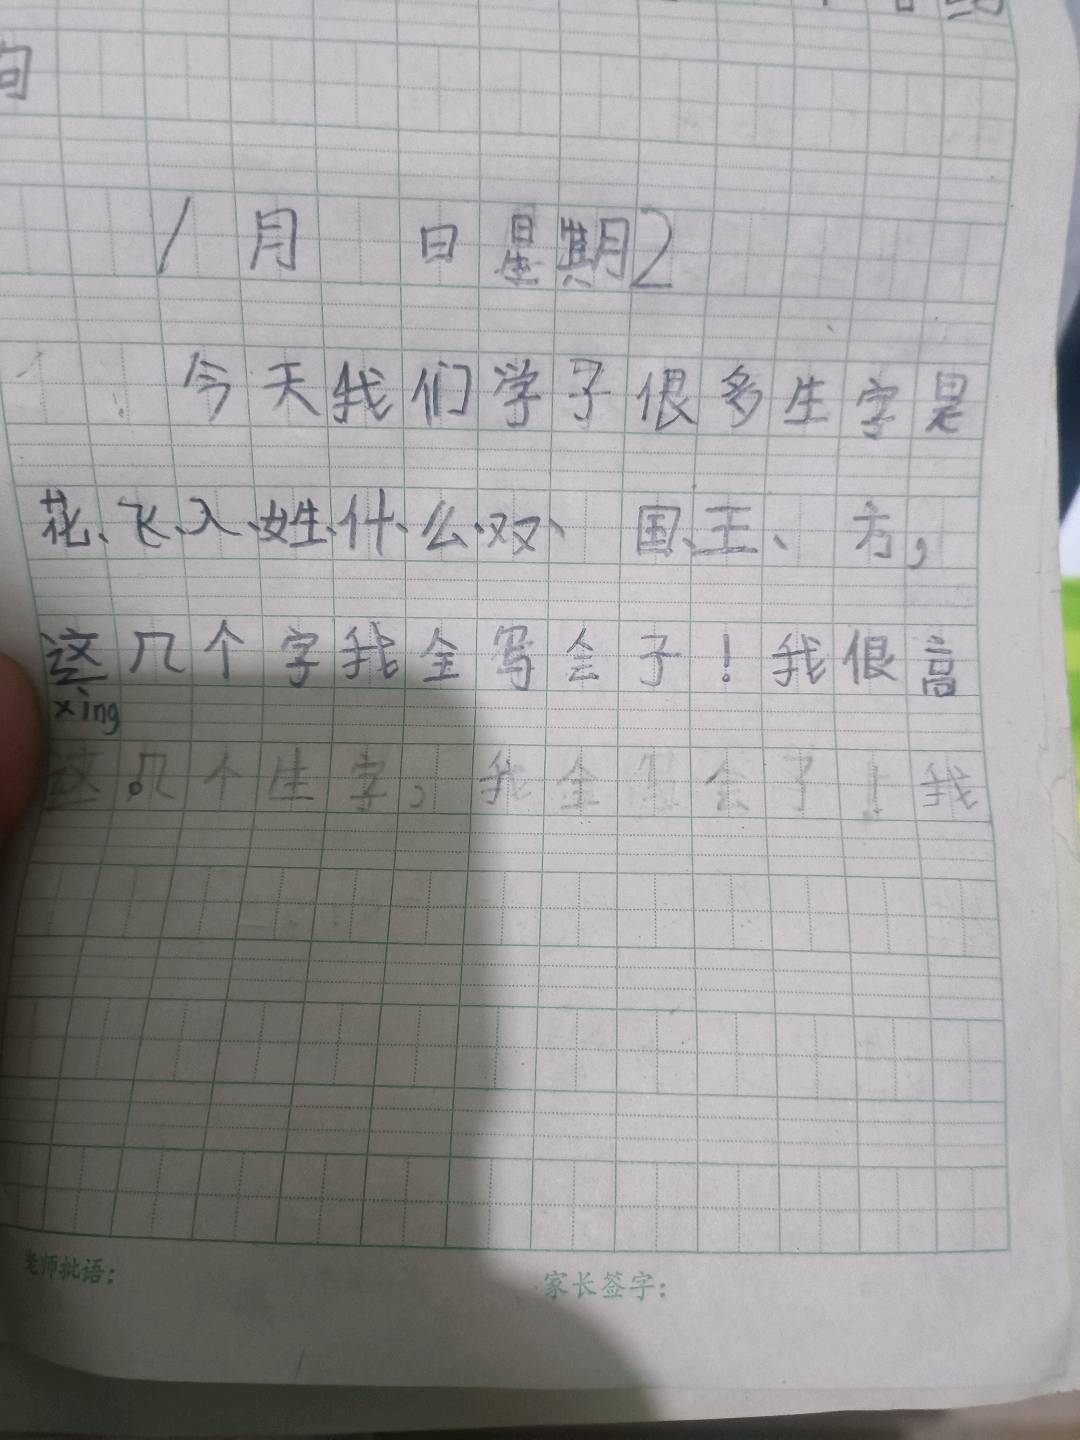 向
1月 日星期2
今天我们学子很多生字是
花、飞、入、姓、什、么、双、国、王、方，
这几个字我全写会子！我很高
xing
。
这几个生字，我全写会了！我
老师批语：
家长签字：